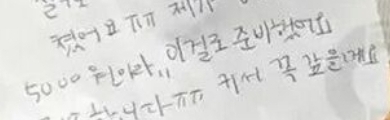 쳤어요 ㅠㅠ 제가
5000원이라,, 이걸로 준비했어요
합니다ㅠㅠ 커서 꼭 갚을게요